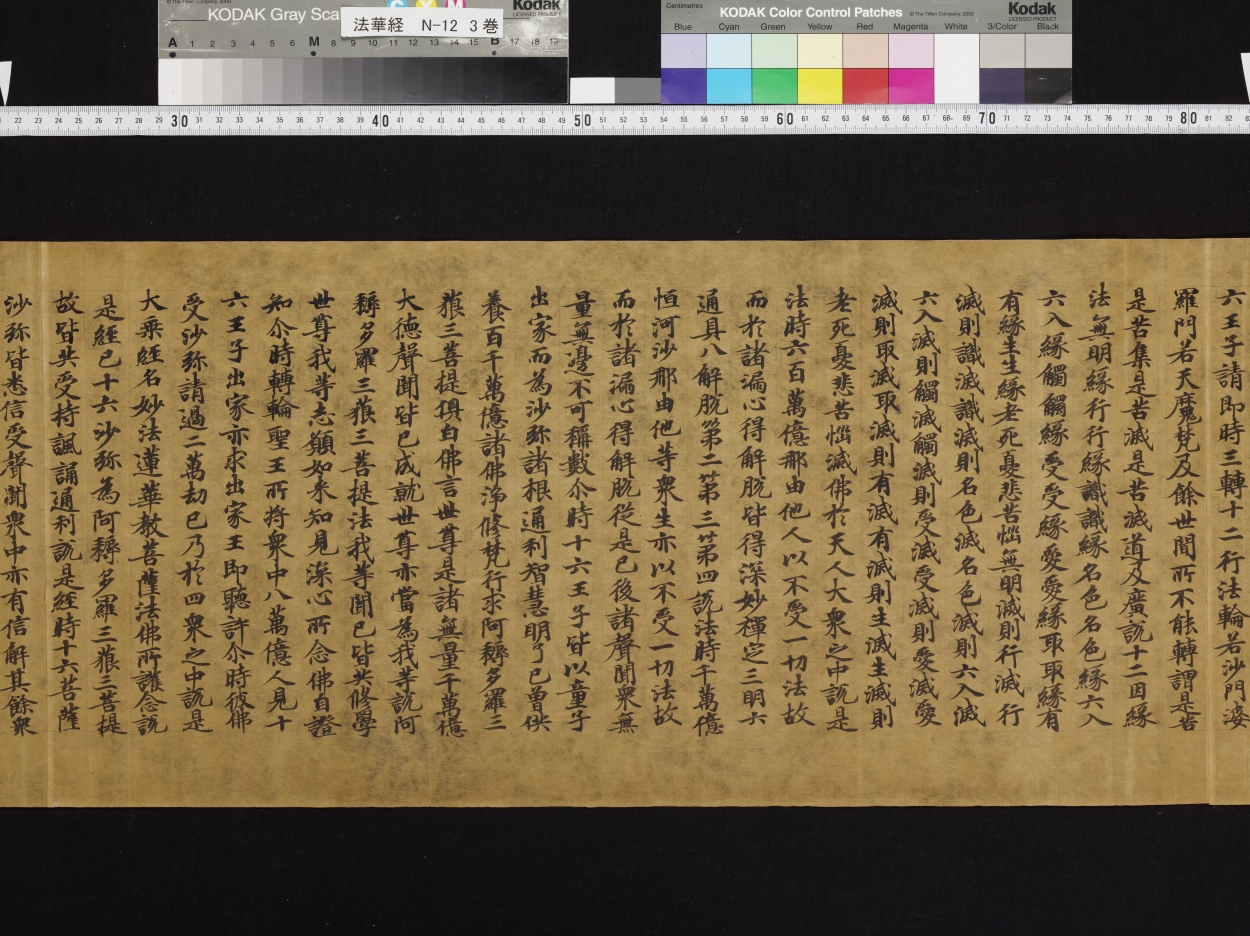 KODAK Gray Sca
© The Tiffen Company, 2000
Kodak
LICENSED PRODUCT
C Y M
法華経 N-12 3巻
A 1 2 3 4 5 6 M 8 9 10 11 12 13 14 15 B 17 18 19
Centimetres
KODAK Color Control Patches
© The Tiffen Company, 2000
Kodak
LICENSED PRODUCT
Blue Cyan Green Yellow Red Magenta White 3/Color Black
22 23 24 25 26 27 28 29 30 31 32 33 34 35 36 37 38 39 40 41 42 43 44 45 46 47 48 49 50 51 52 53 54 55 56 57 58 59 60 61 62 63 64 65 66 67 68 69 70 71 72 73 74 75 76 77 78 79 80 81 82
六王子請即時三轉十二行法輪若沙門婆
羅門若天魔梵及餘世間所不能轉謂是苦
是苦集是苦滅是苦滅道及廣說十二因緣
法無明緣行行緣識識緣名色名色緣六入
六入緣觸觸緣受受緣愛愛緣取取緣有
有緣生生緣老死憂悲苦惱無明滅則行滅行
滅則識滅識滅則名色滅名色滅則六入滅
六入滅則觸滅觸滅則受滅受滅則愛滅愛
滅則取滅取滅則有滅有滅則生滅生滅則
老死憂悲苦惱滅佛於天人大衆之中說是
法時六百萬億那由他人以不受一切法故
而於諸漏心得解脫皆得深妙禪定三明六
通具八解脫第二第三第四說法時千萬億
恒河沙那由他等衆生亦以不受一切法故
而於諸漏心得解脫從是已後諸聲聞衆無
量無邊不可稱數尒時十六王子皆以童子
出家而為沙弥諸根通利智慧明了已曾供
養百千萬億諸佛淨修梵行求阿耨多羅三
藐三菩提俱白佛言世尊是諸無量千萬億
大德聲聞皆已成就世尊亦當為我等說阿
耨多羅三藐三菩提法我等聞已皆共修學
世尊我等志願如来知見深心所念佛自證
知尒時轉輪聖王所將衆中八萬億人見十
六王子出家亦求出家王即聽許尒時彼佛
受沙弥請過二萬劫已乃於四衆之中說是
大乗經名妙法蓮華教菩薩法佛所護念說
是經已十六沙弥為阿耨多羅三藐三菩提
故皆共受持諷誦通利說是經時十六菩薩
沙弥皆悉信受聲聞衆中亦有信解其餘衆